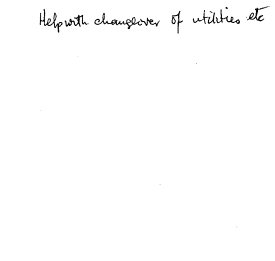 Help with changeover of utilities etc